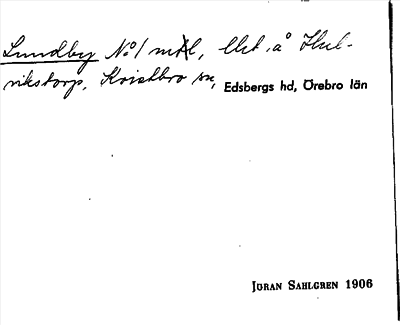 Lundby No 1 mtl, Utd. å Hul-
rikstorp, Kvistbro sn, Edsbergs hd, Örebro län
JÖRAN SAHLGREN 1906